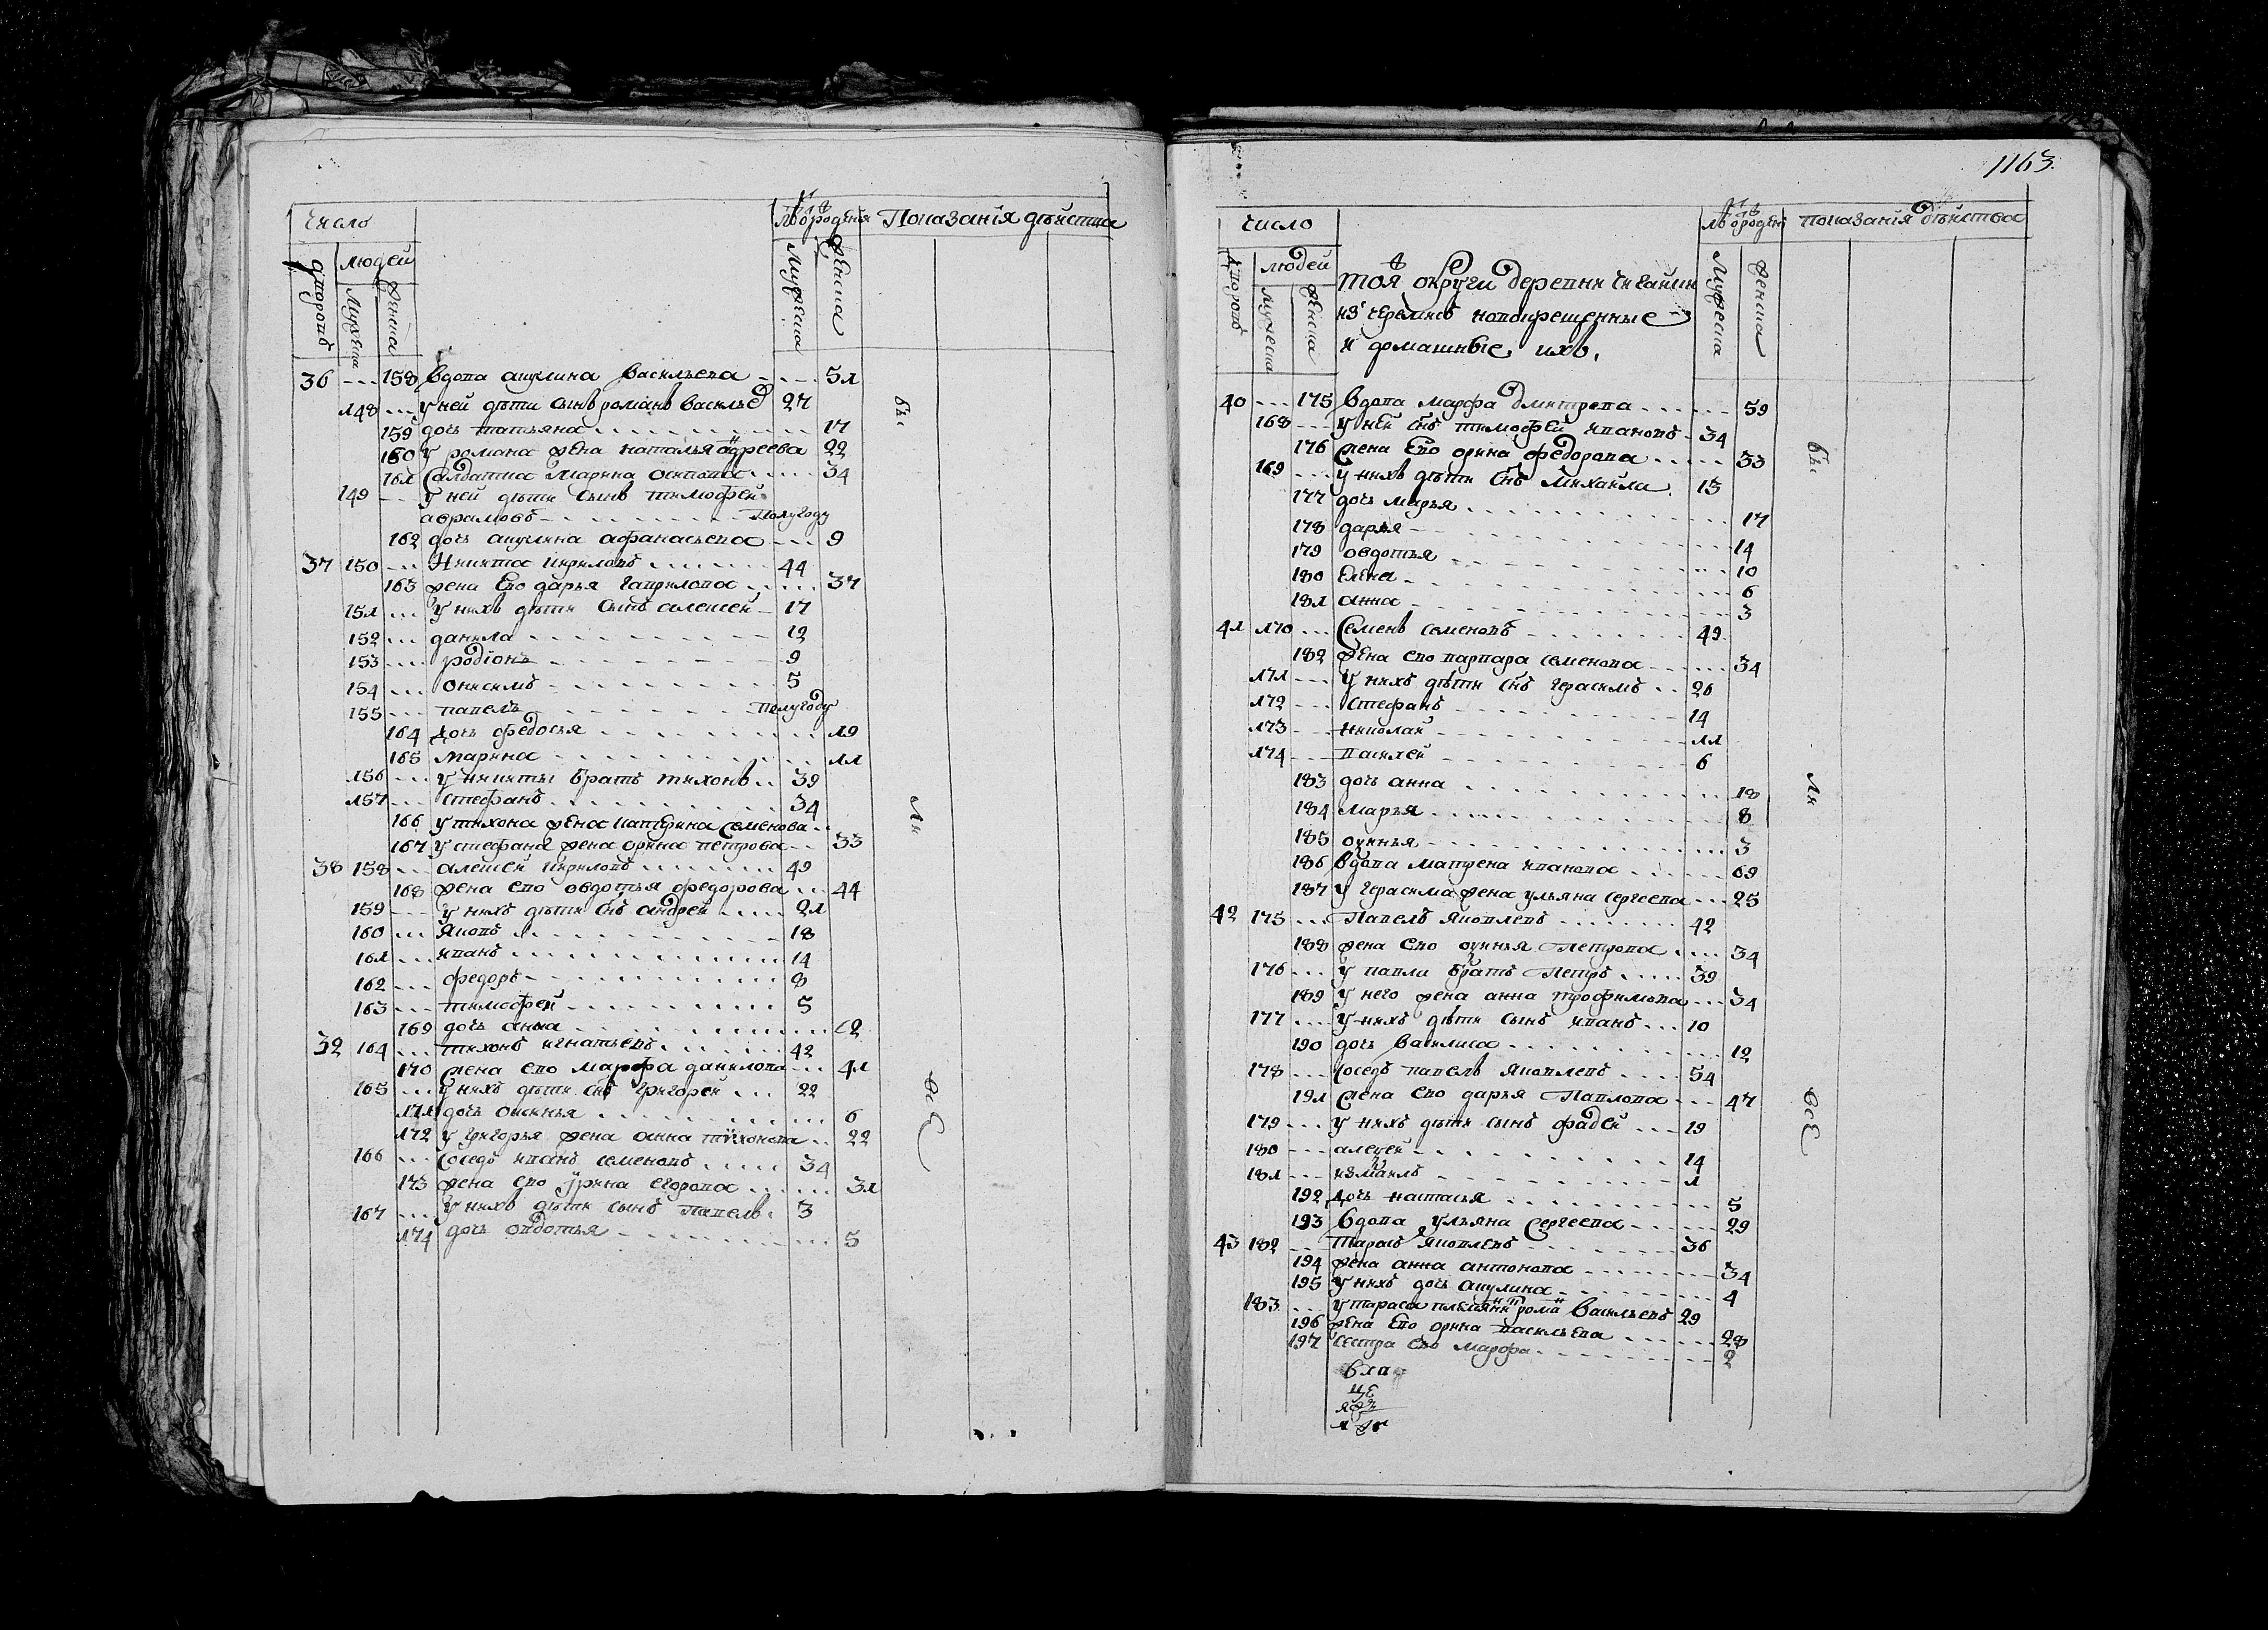 число
людей
дворовъ
мужеска
женска
лѣ отрожденія
мужеска
женска
Показанія дѣйства
36 158 вдова акулина васильева 51
148 у ней дѣти сынъ романъ васильев 27
159 дочь татьяна 17
160 у романа жена наталья андреева 22
161 Салдатка марина осипова 34
149 у ней дѣти сынъ тимофей
аврамовъ полугоду
162 дочь акулина афанасьева 9
37 150 Никита кириловъ 44
163 жена ево дарья гаврилова 37
151 у нихъ дѣти сынъ алексей 17
152 данила 12
153 родіонъ 9
154 онисимъ 5
155 павелъ полугоду
164 дочь федосья 19
165 марина 11
156 у никиты братъ тихонъ 39
157 стефанъ 34
166 у тихона жена катерина семенова
167 у стефана жена орина петрова 33
38 158 алексей кириловъ 49
168 жена ево овдотья федорова 44
159 у нихъ дѣти снъ андреи 21
160 яковъ 18
161 иванъ 14
162 федоръ 8
163 тимофей 5
169 дочь анна 2
32 164 тихонъ игнатьевъ 42
170 жена ево марфа данилова 41
165 у нихъ дѣти снъ григореи 22
171 дочь оксинья 6
172 у григорья жена анна тихонова 22
166 соседъ иванъ семеновъ 34
173 жена ево урина егорова 31
167 у нихъ дѣти сынъ павелъ 3
174 дочь овдотья 5
бы
ли
все
1163
число
людей
дворовъ
мужеска
женска
лѣ отрожден
мужеска
женска
показанія дѣйства
тоя округи деревни
из черемисъ новокрещенные
и домашные ихъ
40 175 вдова марфа дмитрева 59
168 у ней снъ тимофей ивановъ 34
176 жена ево орина федорова 33
169 у нихъ дѣти снъ михаила 13
177 дочь марья 17
178 дарья 14
179 овдотья 10
180 елена 6
181 анна 3
41 170 Семенъ семеновъ 49
182 жена ево варвара семенова 34
171 у нихъ дѣти снъ герасимъ 26
172 стефанъ 14
173 николай 11
174 василей 6
183 дочь анна 18
184 марья 8
185 оуинья 3
186 вдова матрена иванова 69
187 у герасима жена ульяна сергеева 25
42 175 Павелъ яковлевъ 42
188 жена ево оуинья петрова 34
176 у павла братъ петръ 39
189 у него жена анна трофимова 34
177 у нихъ дѣти сынъ иванъ 10
190 дочь василиса 12
178 соседъ павелъ яковлевъ 54
191 жена ево дарья павлова 47
179 у нихъ дѣти сынъ фадей 19
180 алексей 14
181 измаилъ 1
192 дочь настасья 5
193 вдова ульяна сергеева 29
43 182 тарасъ яковлевъ 36
194 жена анна антонова 34
195 у нихъ дочь акулина 4
183 у тараса племянн рома васильевъ 29
196 жена ево орина васильева 28
197 сестра ево марфа 2
бы
ли
все